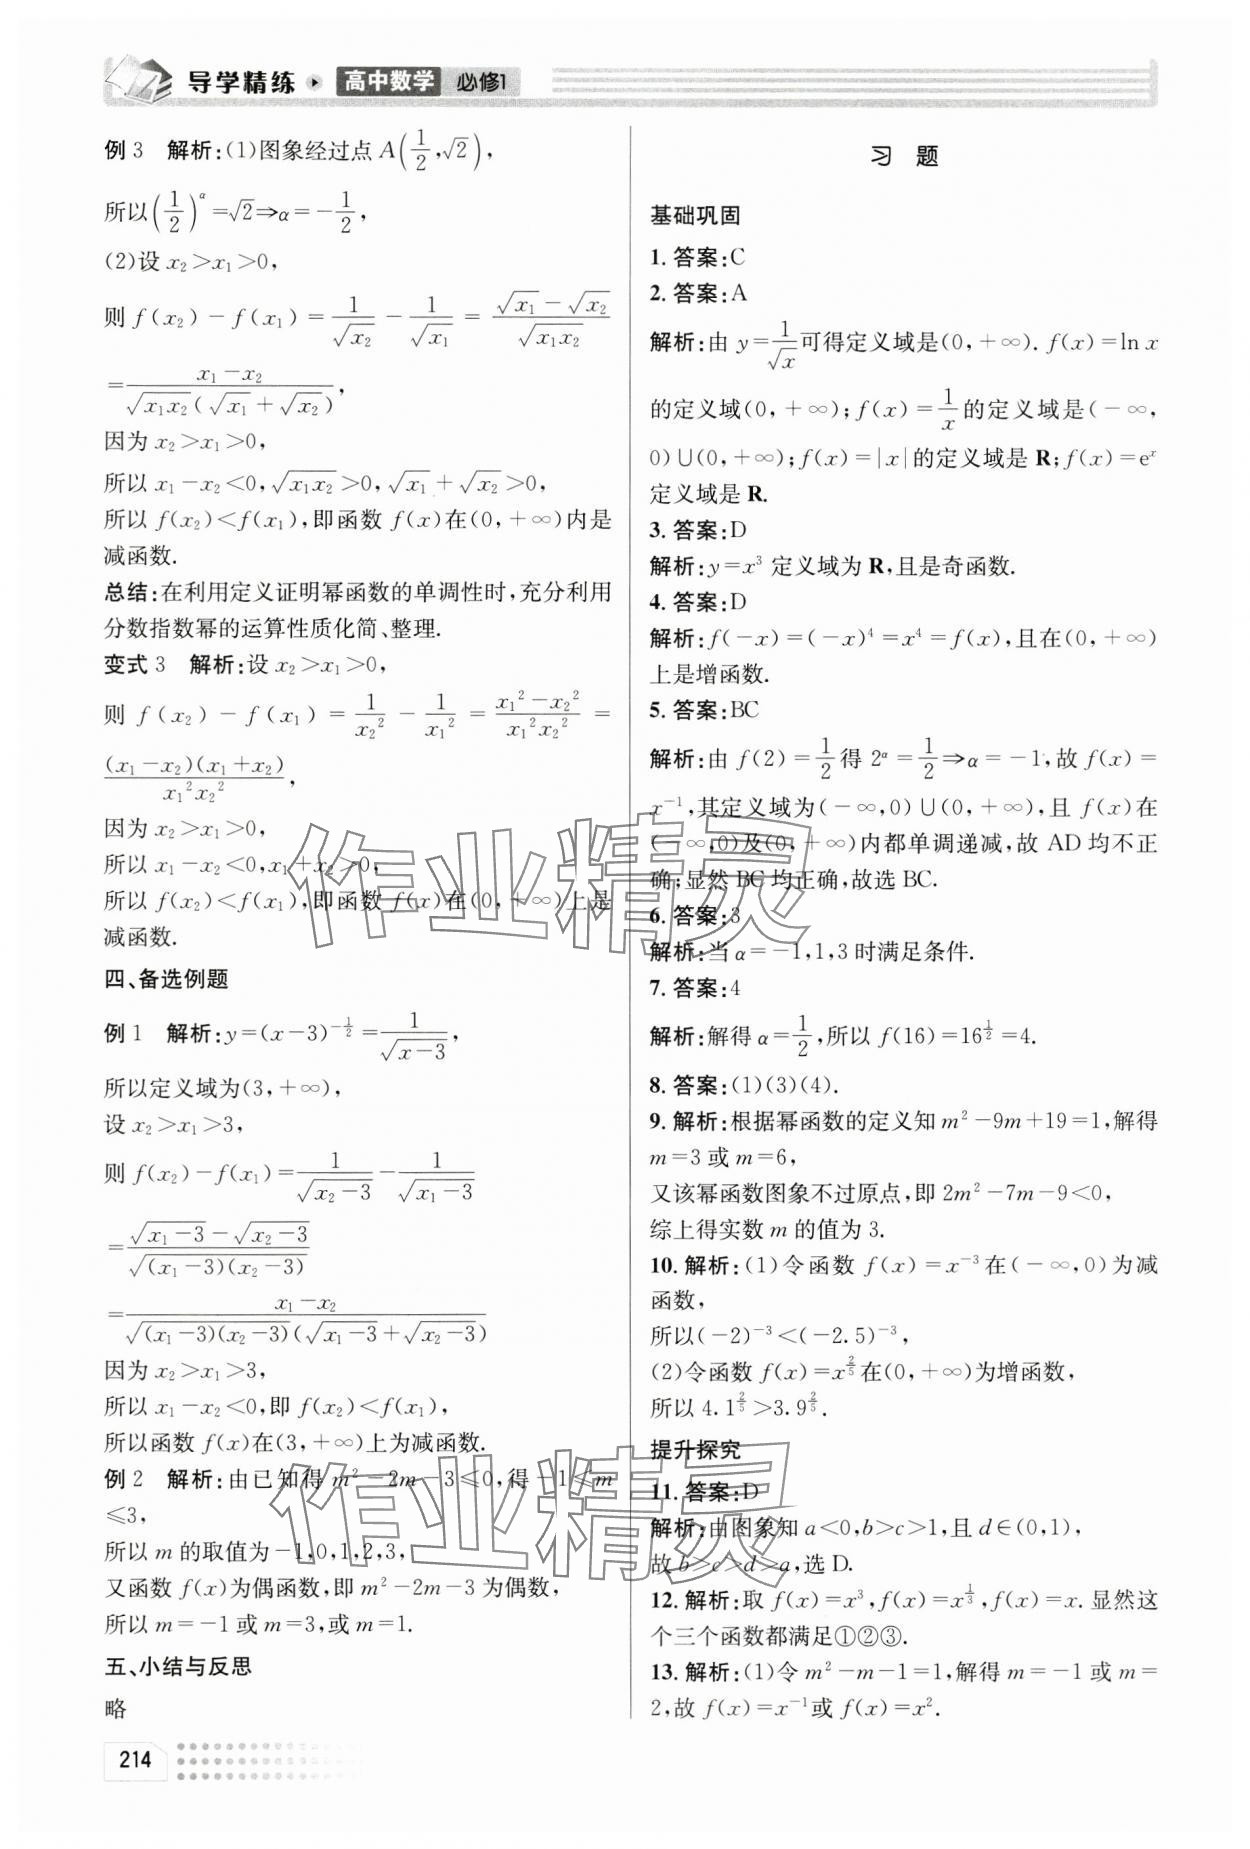 导学精练 高中数学 必修1
例3 解析:(1)图象经过点 A(1/2,√2),
所以(1/2)^α=√2⇒α=-1/2,
(2)设 x₂>x₁>0,
则 f(x₂)-f(x₁)=1/√x₂-1/√x₁=(√x₁-√x₂)/√(x₁x₂)
=(x₁-x₂)/(√(x₁x₂)(√x₁+√x₂)),
因为 x₂>x₁>0,
所以 x₁-x₂<0,√(x₁x₂)>0,√x₁+√x₂>0,
所以 f(x₂)<f(x₁),即函数 f(x)在(0,+∞)内是
减函数.
总结:在利用定义证明幂函数的单调性时,充分利用
分数指数幂的运算性质化简、整理.
变式3 解析:设 x₂>x₁>0,
则 f(x₂)-f(x₁)=1/x₂²-1/x₁²=(x₁²-x₂²)/(x₁²x₂²)=
(x₁-x₂)(x₁+x₂)/(x₁²x₂²),
因为 x₂>x₁>0,
所以 x₁-x₂<0,x₁+x₂>0,
所以 f(x₂)<f(x₁),即函数 f(x)在(0,+∞)上是
减函数.
四、备选例题
例1 解析:y=(x-3)^(-1/2)=1/√(x-3),
所以定义域为(3,+∞),
设 x₂>x₁>3,
则 f(x₂)-f(x₁)=1/√(x₂-3)-1/√(x₁-3)
=(√(x₁-3)-√(x₂-3))/√((x₁-3)(x₂-3))
=(x₁-x₂)/(√((x₁-3)(x₂-3))(√(x₁-3)+√(x₂-3)))
因为 x₂>x₁>3,
所以 x₁-x₂<0,即 f(x₂)<f(x₁),
所以函数 f(x)在(3,+∞)上为减函数.
例2 解析:由已知得 m²-2m-3⩽0,得-1⩽m
⩽3,
所以 m 的取值为-1,0,1,2,3,
又函数 f(x)为偶函数,即 m²-2m-3为偶数,
所以 m=-1或 m=3,或 m=1.
五、小结与反思
略
214
习 题
基础巩固
1. 答案:C
2. 答案:A
解析:由 y=1/√x可得定义域是(0,+∞). f(x)=ln x
的定义域(0,+∞);f(x)=1/x的定义域是(-∞,
0)∪(0,+∞);f(x)=|x|的定义域是 R;f(x)=eˣ
定义域是 R.
3. 答案:D
解析:y=x³ 定义域为 R,且是奇函数.
4. 答案:D
解析:f(-x)=(-x)⁴=x⁴=f(x),且在(0,+∞)
上是增函数.
5. 答案:BC
解析:由 f(2)=1/2得 2^α=1/2⇒α=-1,故 f(x)=
x⁻¹,其定义域为(-∞,0)∪(0,+∞),且 f(x)在
(-∞,0)及(0,+∞)内都单调递减,故 AD 均不正
确;显然 BC 均正确,故选 BC.
6. 答案:3
解析:当 α=-1,1,3时满足条件.
7. 答案:4
解析:解得 α=1/2,所以 f(16)=16^(1/2)=4.
8. 答案:(1)(3)(4).
9. 解析:根据幂函数的定义知 m²-9m+19=1,解得
m=3或 m=6,
又该幂函数图象不过原点,即 2m²-7m-9<0,
综上得实数 m 的值为3.
10. 解析:(1)令函数 f(x)=x⁻³在(-∞,0)为减
函数,
所以(-2)⁻³<(-2.5)⁻³,
(2)令函数 f(x)=x^(2/5)在(0,+∞)为增函数,
所以 4.1^(2/5)>3.9^(2/5).
提升探究
11. 答案:D
解析:由图象知 a<0,b>c>1,且 d∈(0,1),
故 b>c>d>a,选 D.
12. 解析:取 f(x)=x³,f(x)=x^(1/3),f(x)=x. 显然这
个三个函数都满足①②③.
13. 解析:(1)令 m²-m-1=1,解得 m=-1或 m=
2,故 f(x)=x⁻¹或 f(x)=x².
作业精灵
作业精灵